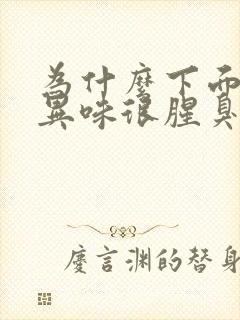 为什麼下面
異味很腥臭
慶言渊的替身